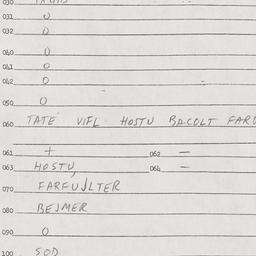 030
031 0
032 0
040 0
041 0
042 0
050 0
060 TATE VIFL HOSTU BACOLT FARU
061 + 062 —
063 HOSTU 064 —
070 FARFUJLTER
080 BEJMER
090 0
100 SOD